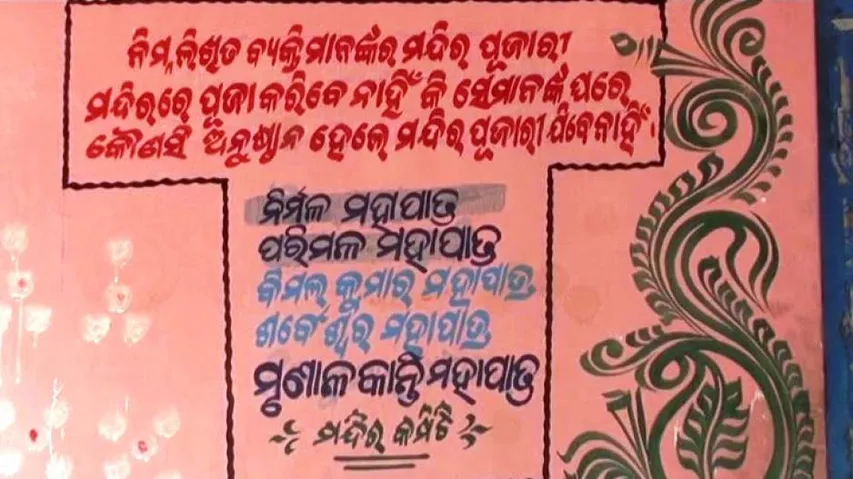 ନିମ୍ନଲିଖିତ ବ୍ୟକ୍ତିମାନଙ୍କର ମନ୍ଦିର ପୂଜାରୀ
ମନ୍ଦିରରେ ପୂଜା କରିବେ ନାହିଁ କି ସେମାନଙ୍କ ଘରେ
କୌଣସି ଅନୁଷ୍ଠାନ ହେଲେ ମନ୍ଦିର ପୂଜାରୀ ଯିବେ ନାହିଁ।
ନିର୍ମଳ ମହାପାତ୍ର
ପରିମଳ ମହାପାତ୍ର
ବିମଲ୍ କୁମାର୍ ମହାପାତ୍ର
ଶର୍ବେଶ୍ୱର ମହାପାତ୍ର
ମୃଣାଳ କାନ୍ତି ମହାପାତ୍ର
ମନ୍ଦିର କମିଟି